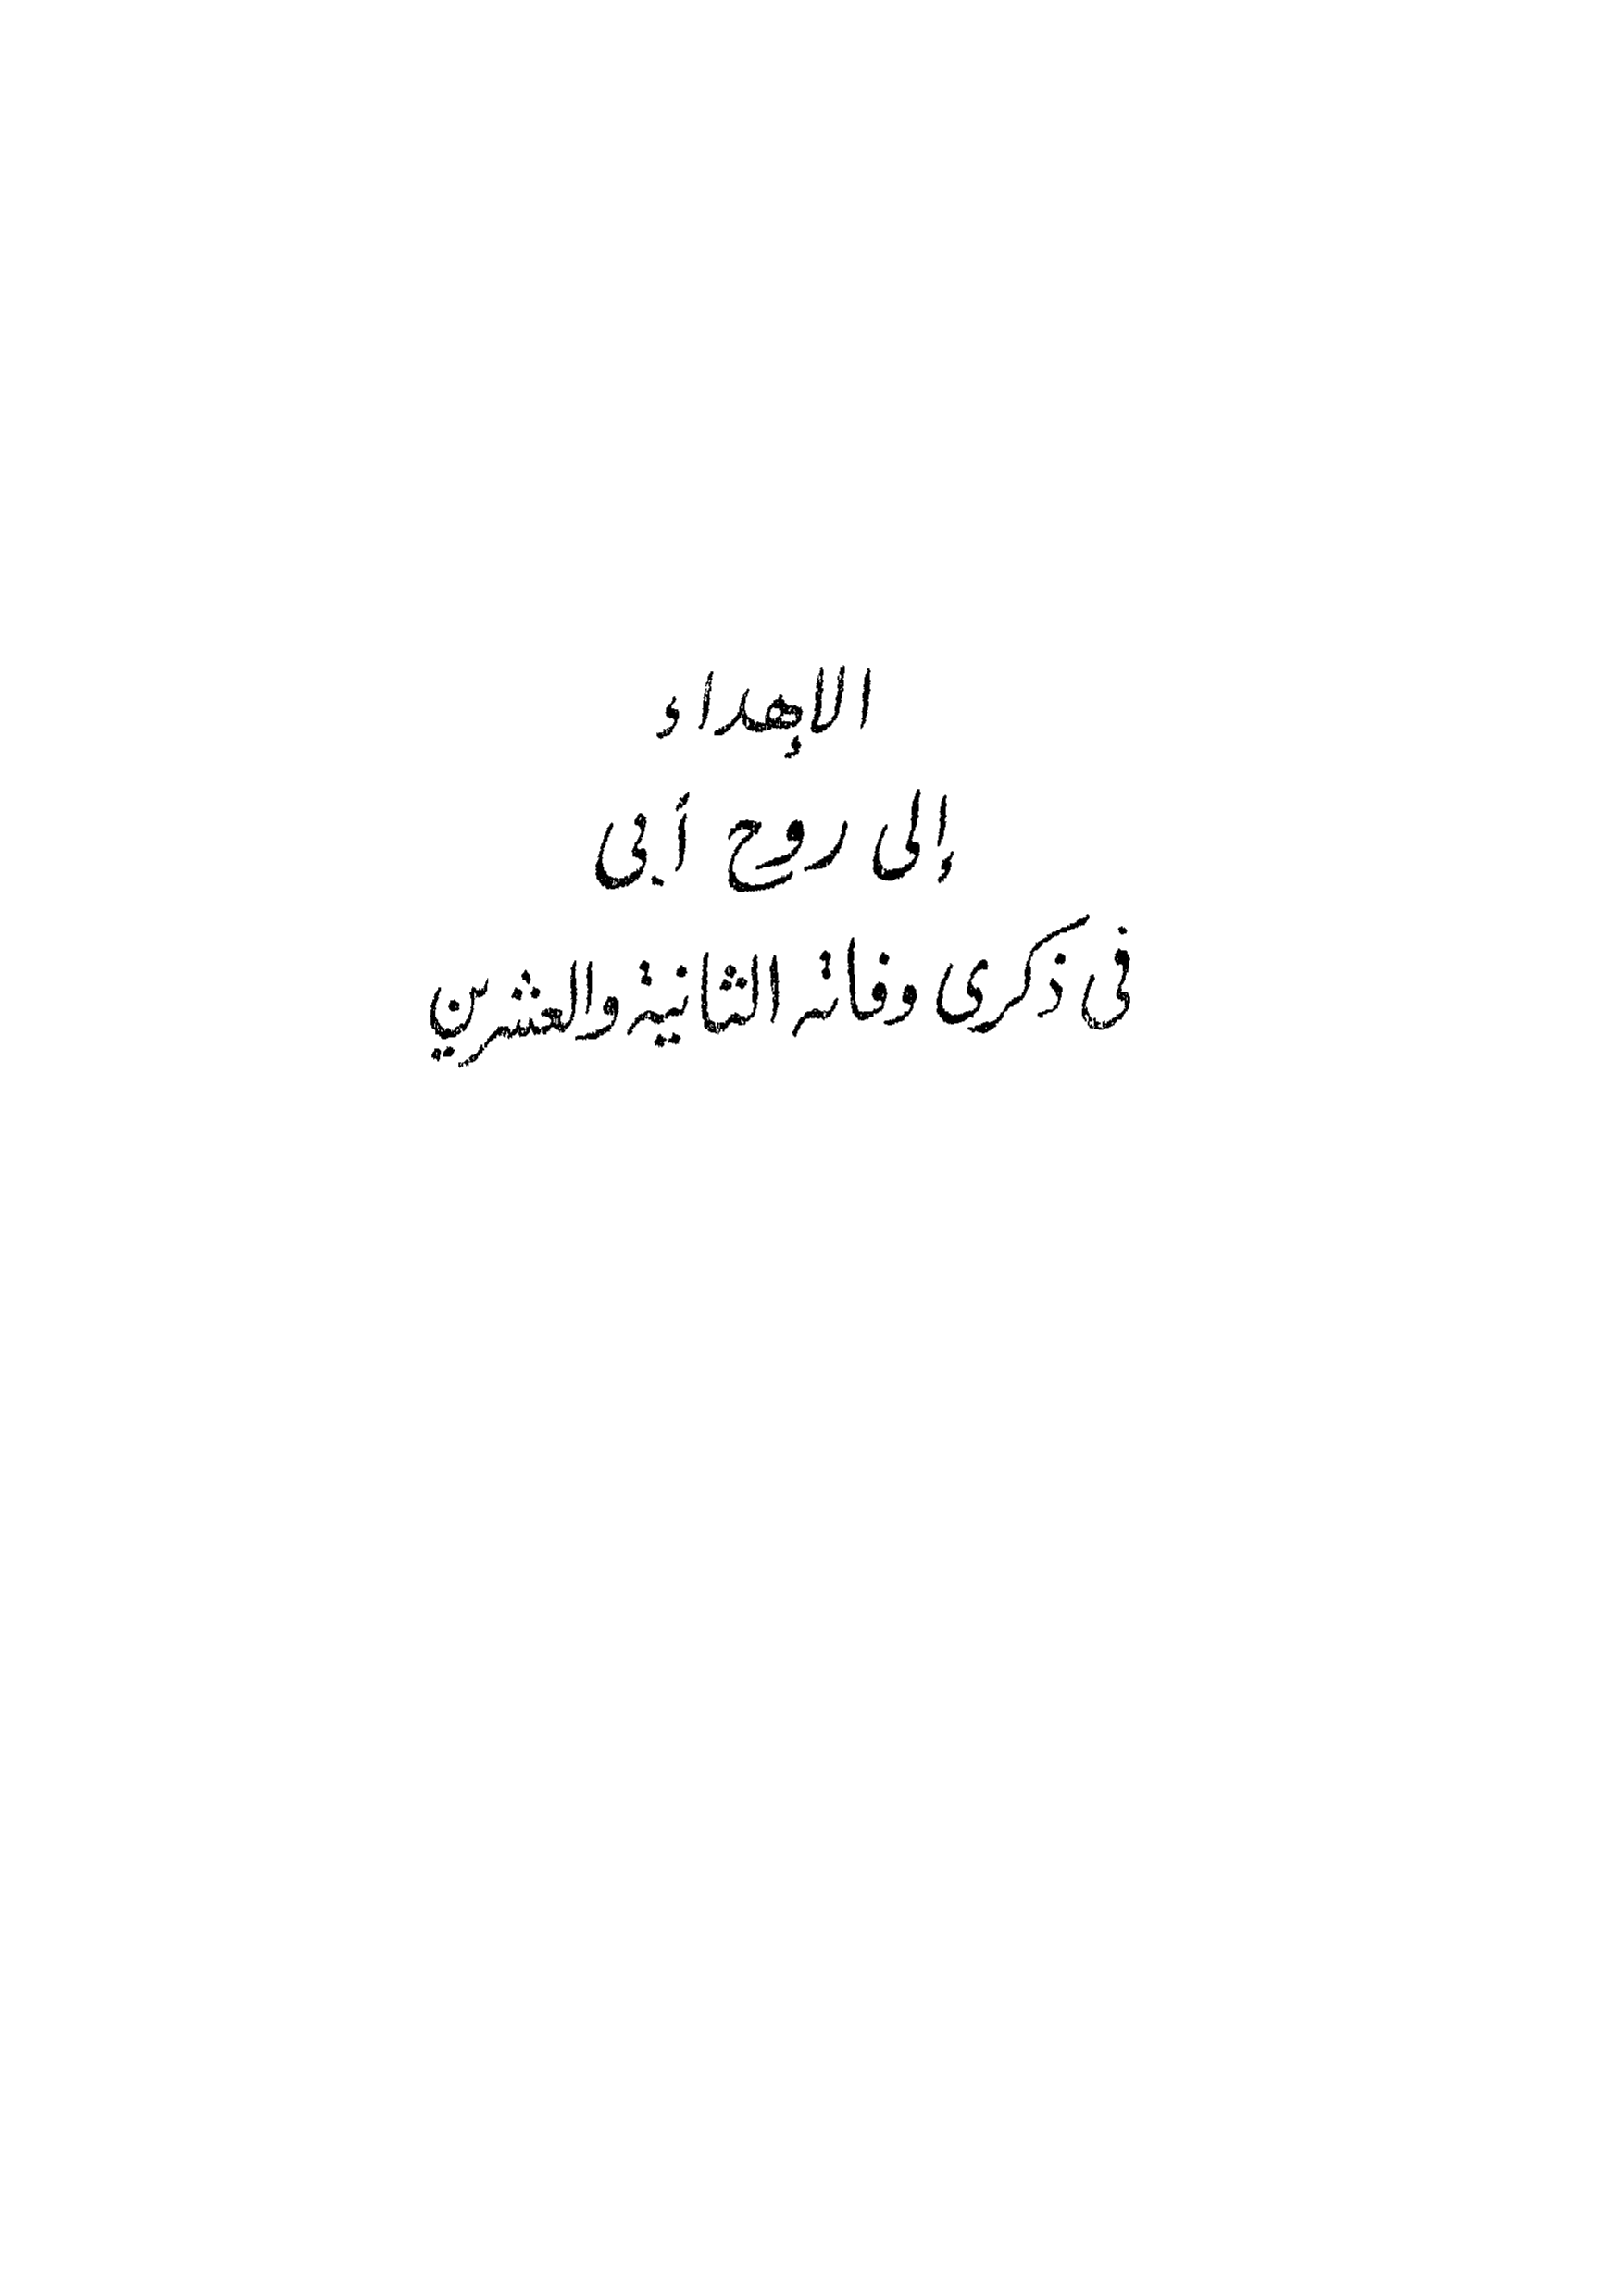 الإهداء
إلى روح أبى
فى ذكرى وفاته الثانية والعشرين